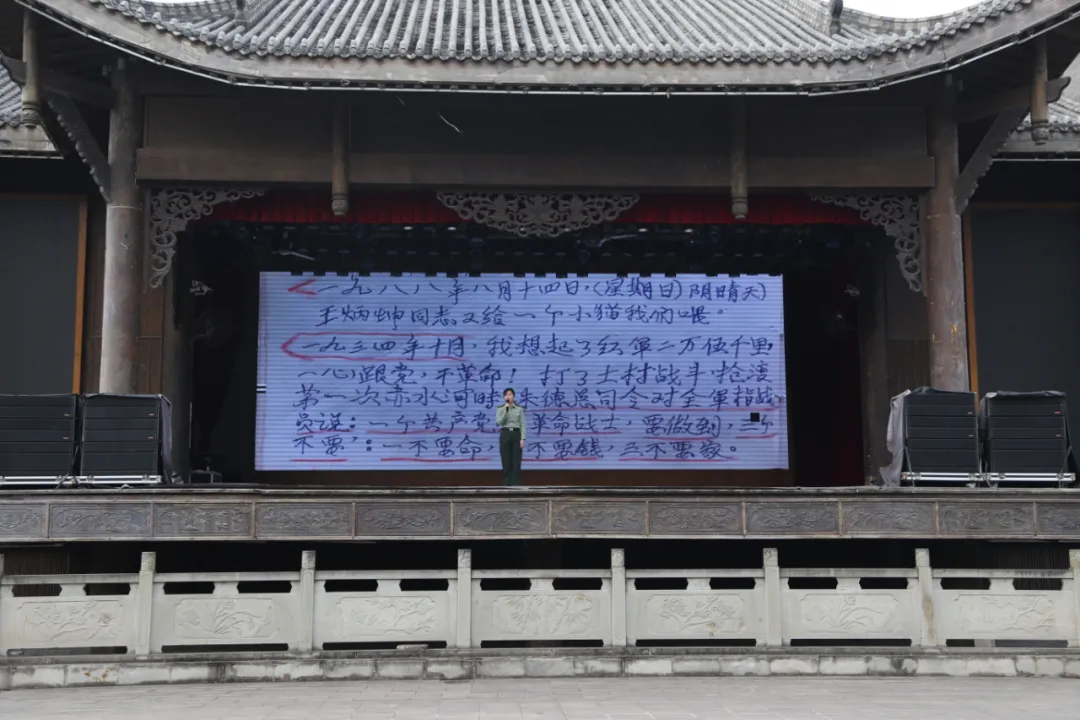 一九八八年八月十四日,(星期日)阴晴天)
王炳坤同志又给一个小猫我们喂。
一九三四年十月,我想起了红軍二万伍千里
一心跟党,干革命!打了土村战斗,抢渡
第一次赤水河時朱德总司令对全軍指战
员说:一个共产党 革命战士,要做到,三个
不要':一不要命, 不要錢,三不要家。